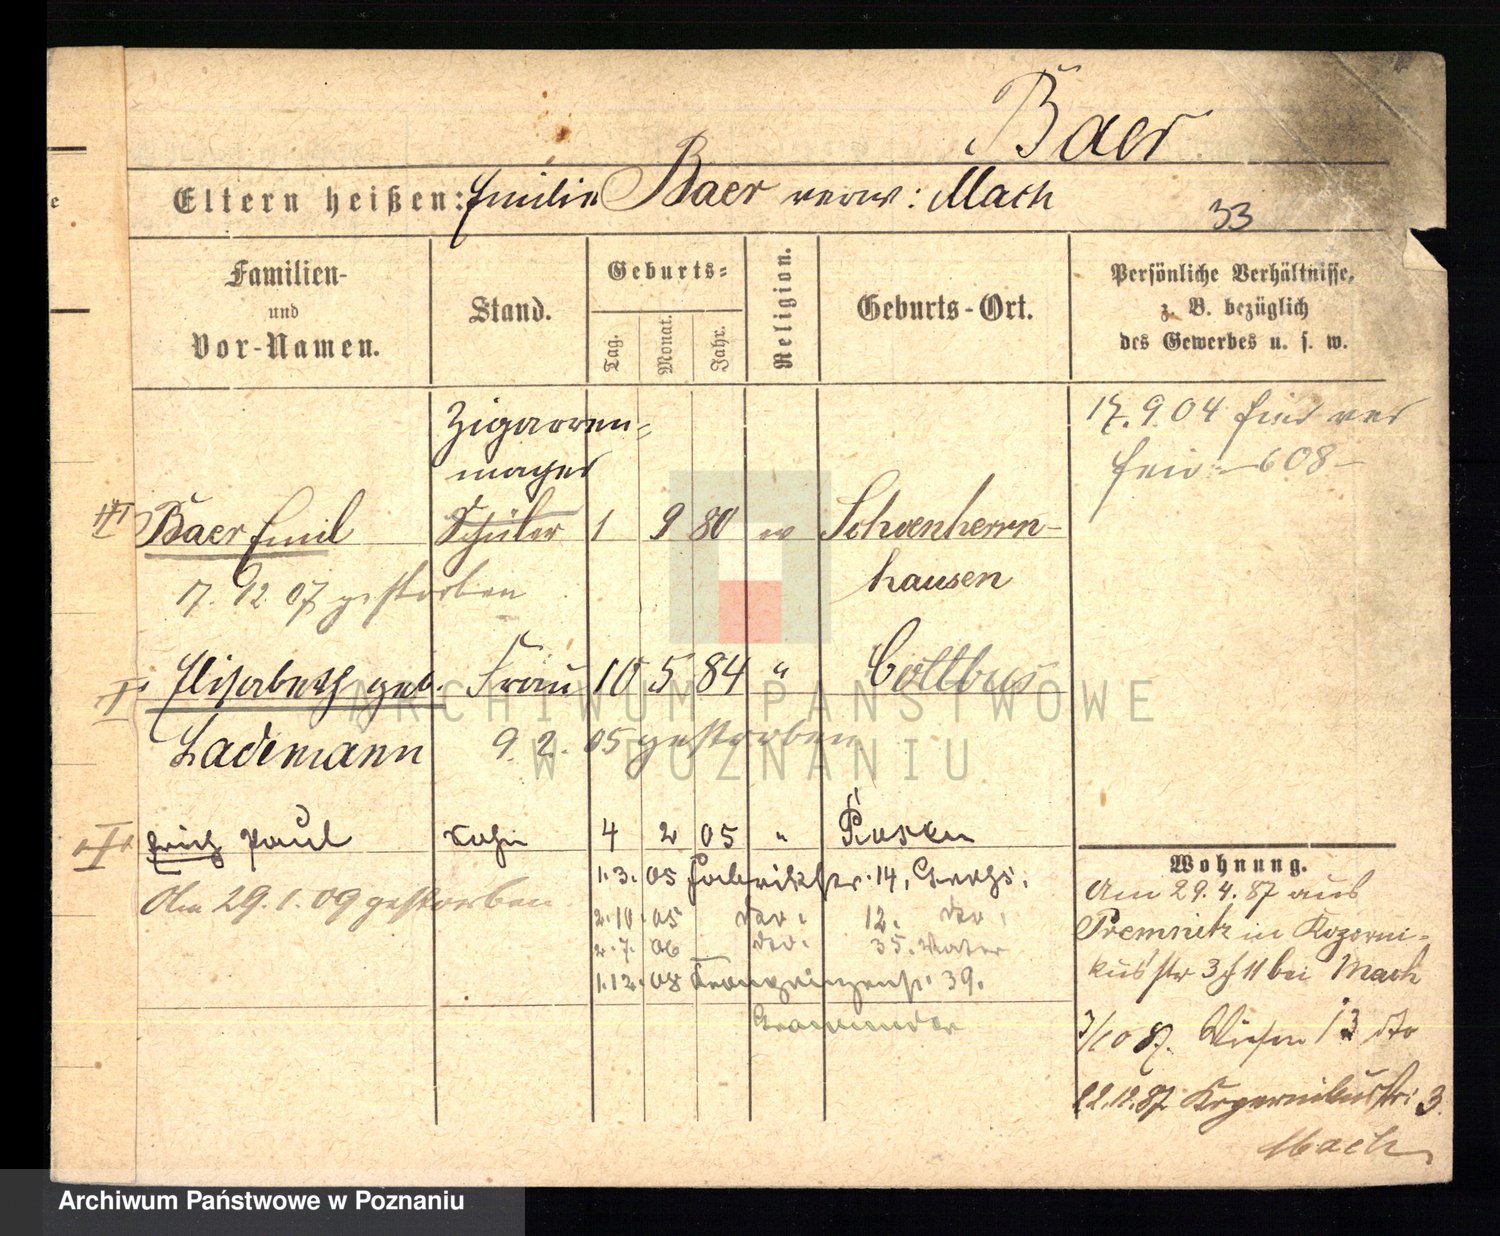 Baer
Eltern heißen: Emilie Baer verw: Mach
33
Familien-
und
Vor-Namen.
Stand.
Geburts-
Tag.
Monat.
Jahr.
Religion.
Geburts-Ort.
Persönliche Verhältnisse,
z. B. bezüglich
des Gewerbes u. s. w.
Zigarren-
macher
17.9.04
608
III Baer Emil Schüler 1 9 80 ev Schoenherrn-
hausen
17. 12 07 gestorben
I Elisabeth geb. Frau 10 5 84 " Cottbus
Lademann 9. 2. 05 gestorben
I Erich Paul Sohn 4 2 05 " Posen
Am 29.1.09 gestorben
1.3.05 Fabrikstr. 14,
2.10.05 dto. 12. dto.
2.7.06 dto. 35.
1.12.08 Kronprinzenstr. 39.
Wohnung.
Am 29.4.87 aus
Premnitz in Koperni-
kusstr 3 b 11 bei Mach
3/10 87. Wiesen 13 dto
22.12.87 Kopernikusstr: 3.
Mach
ARCHIWUM PAŃSTWOWE
W POZNANIU
Archiwum Państwowe w Poznaniu